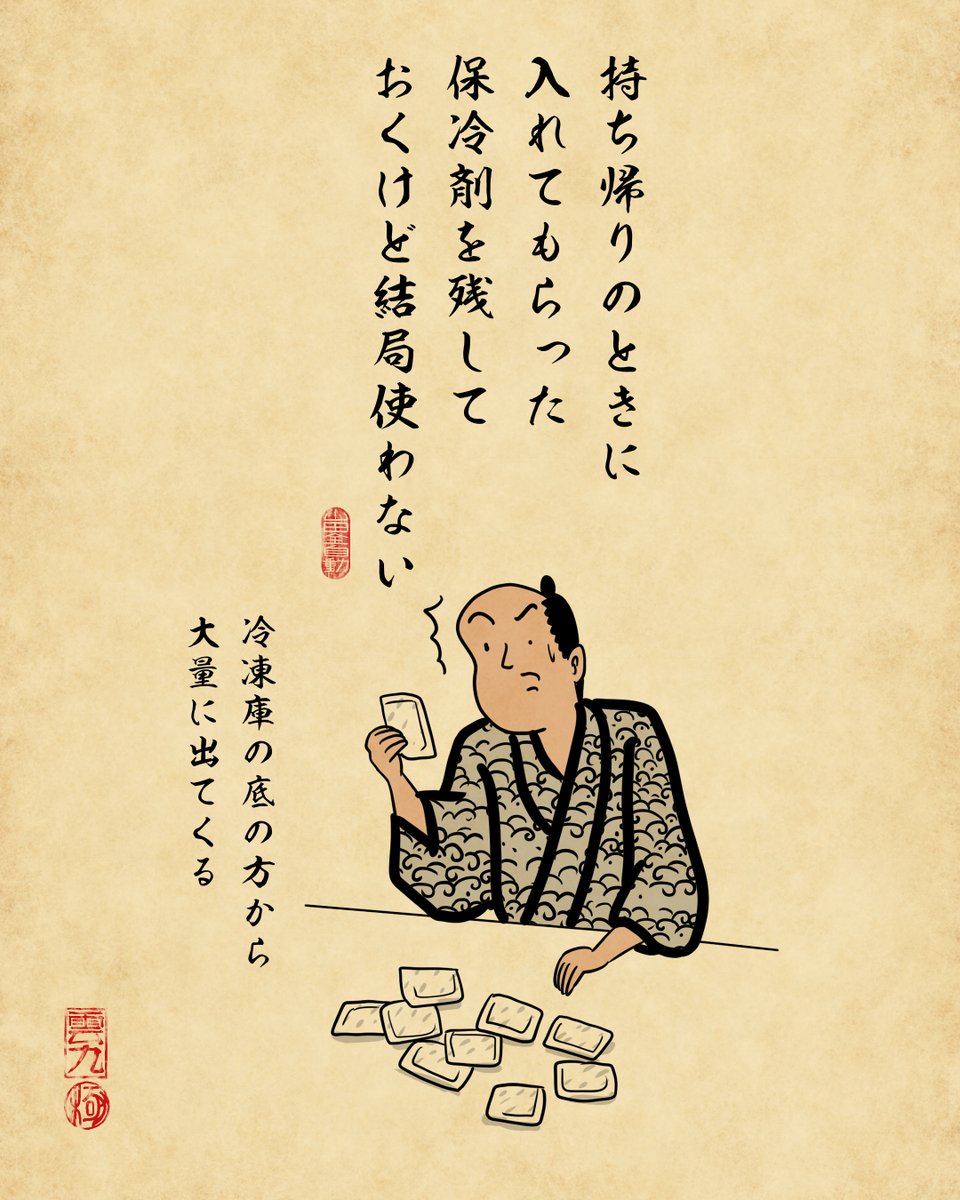 持ち帰りのときに
入れてもらった
保冷剤を残して
おくけど結局使わない
冷凍庫の底の方から
大量に出てくる